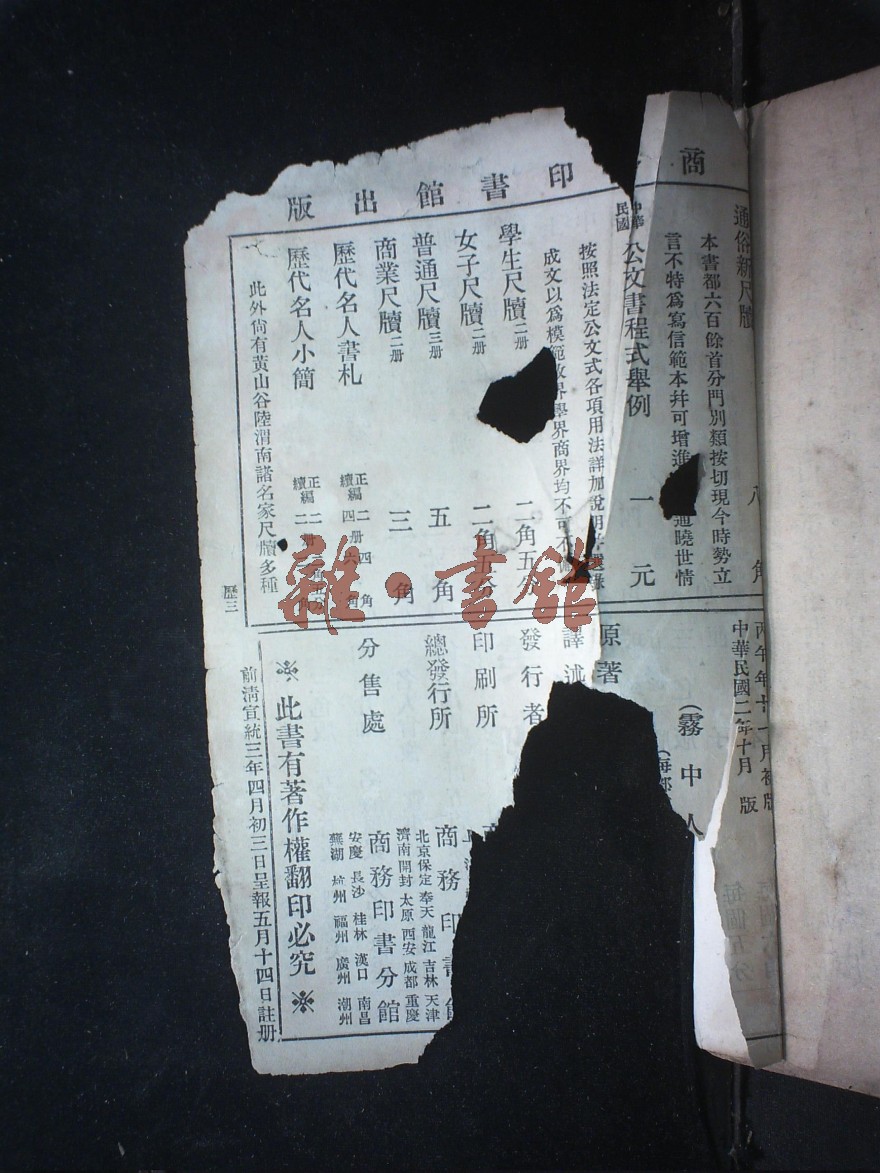 商 印書館出版
通俗新尺牘 八角
本書都六百餘首分門別類按切現今時勢立
言不特爲寫信範本幷可增進 通曉世情
中華民國 公文書程式舉例 一元
按照法定公文式各項用法詳加說明
成文以爲模範 界學界商界均不可
學生尺牘 二册 二角五分
女子尺牘 二册 二角五分
普通尺牘 三册 五角
商業尺牘 二册 三角
歷代名人書札 正編二册四角 續四 角
歷代名人小簡 正編二册 續二
此外尙有黃山谷陸渭南諸名家尺牘多種
歷三
雜·書館
丙午年十一月初版
中華民國二年十月 版
每個五分
霧中人
原著
譯述
發行者
印刷所
總發行所
商務印書館
北京保定奉天龍江吉林天津
濟南開封太原西安成都重慶
分售處
商務印書分館
安慶長沙桂林漢口南昌
蕪湖杭州福州廣州潮州
※此書有著作權翻印必究※
前淸宣統三年四月初三日呈報五月十四日註册